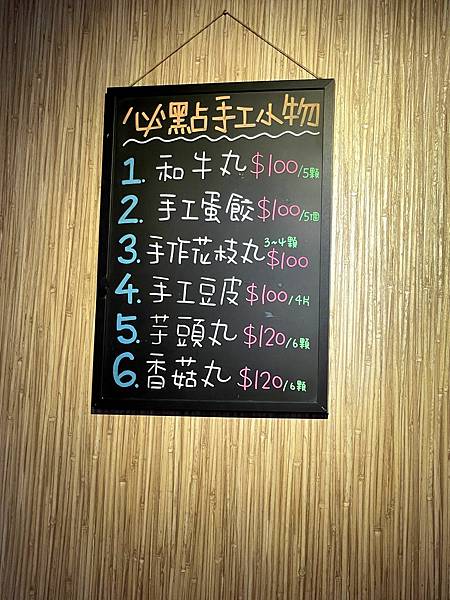 必點手工小物
1. 和牛丸 $100/5顆
2. 手工蛋餃 $100/5個
3. 手作花枝丸 3~4顆 $100
4. 手工豆皮 $100/4片
5. 芋頭丸 $120/6顆
6. 香菇丸 $120/6顆